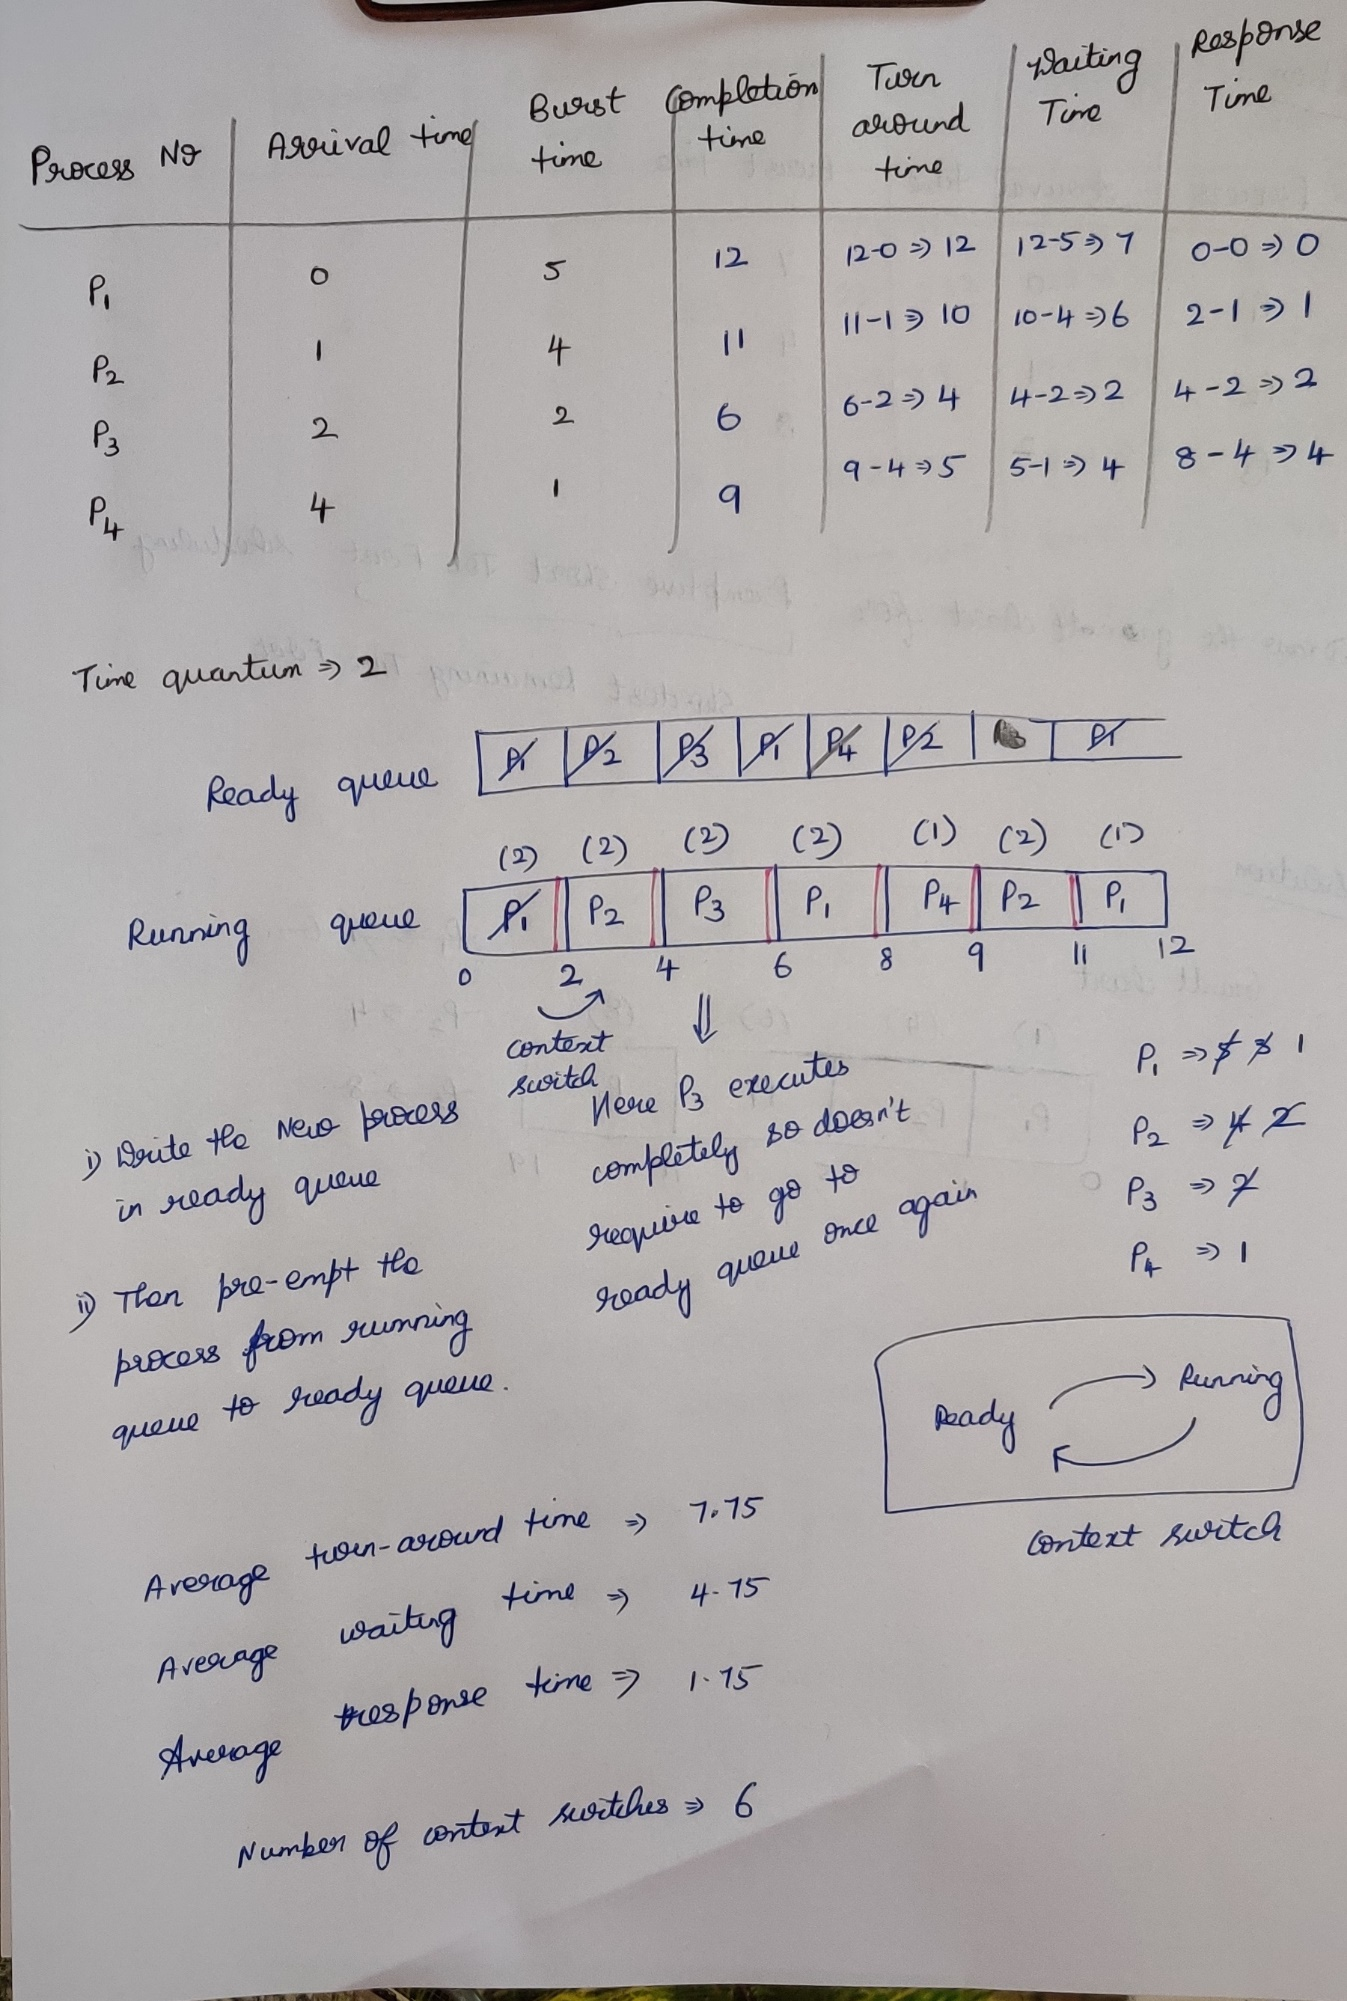 Process No Arrival time Burst time Completion time Turn around time Waiting Time Response Time
P1 0 5 12 12-0 ⇒ 12 12-5 ⇒ 7 0-0 ⇒ 0
P2 1 4 11 11-1 ⇒ 10 10-4 ⇒ 6 2-1 ⇒ 1
P3 2 2 6 6-2 ⇒ 4 4-2 ⇒ 2 4-2 ⇒ 2
P4 4 1 9 9-4 ⇒ 5 5-1 ⇒ 4 8-4 ⇒ 4
Time quantum ⇒ 2
Ready queue P1 P2 P3 P1 P4 P2 P1
(2) (2) (2) (2) (1) (2) (1)
Running queue P1 P2 P3 P1 P4 P2 P1
0 2 4 6 8 9 11 12
context
switch
Here P3 executes
completely so doesn't
require to go to
ready queue once again
i) Write the New process
in ready queue
ii) Then pre-empt the
process from running
queue to ready queue.
P1 ⇒ 5 3 1
P2 ⇒ 4 2
P3 ⇒ 2
P4 ⇒ 1
Ready Running
context switch
Average turn-around time ⇒ 7.75
Average waiting time ⇒ 4.75
Average response time ⇒ 1.75
Number of context switches ⇒ 6